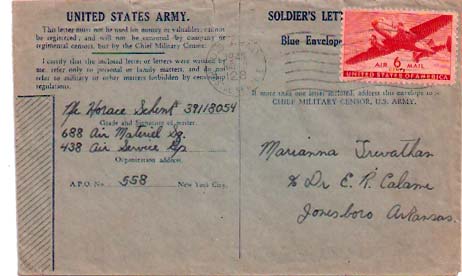 UNITED STATES ARMY.
This letter must not be used for money or valuables; cannot
be registered; and will not be censored by company or
regimental censors, but by the Chief Military Censor.
I certify that the enclosed letter or letters were written by
me, refer only to personal or family matters, and do not
refer to military or other matters forbidden by censorship
regulations.
Horace Schent 38118054
Grade and Signature of writer.
688 Air Materiel Sq.
438 Air Service Gp
Organization address.
A.P.O. No. 558 New York City.
SOLDIER'S
Blue Envelope
AIR 6 MAIL
UNITED STATES OF AMERICA
If more than one letter enclosed, address this envelope to
CHIEF MILITARY CENSOR, U.S. ARMY.
Marianna Trevathan
% Dr E. R. Calame
Jonesboro Arkansas.